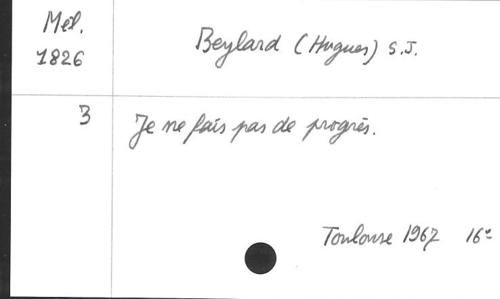 Mél.
1826
Beylard (Hugues) S.J.
3
Je ne fais pas de progrès.
Toulouse 1967 16°